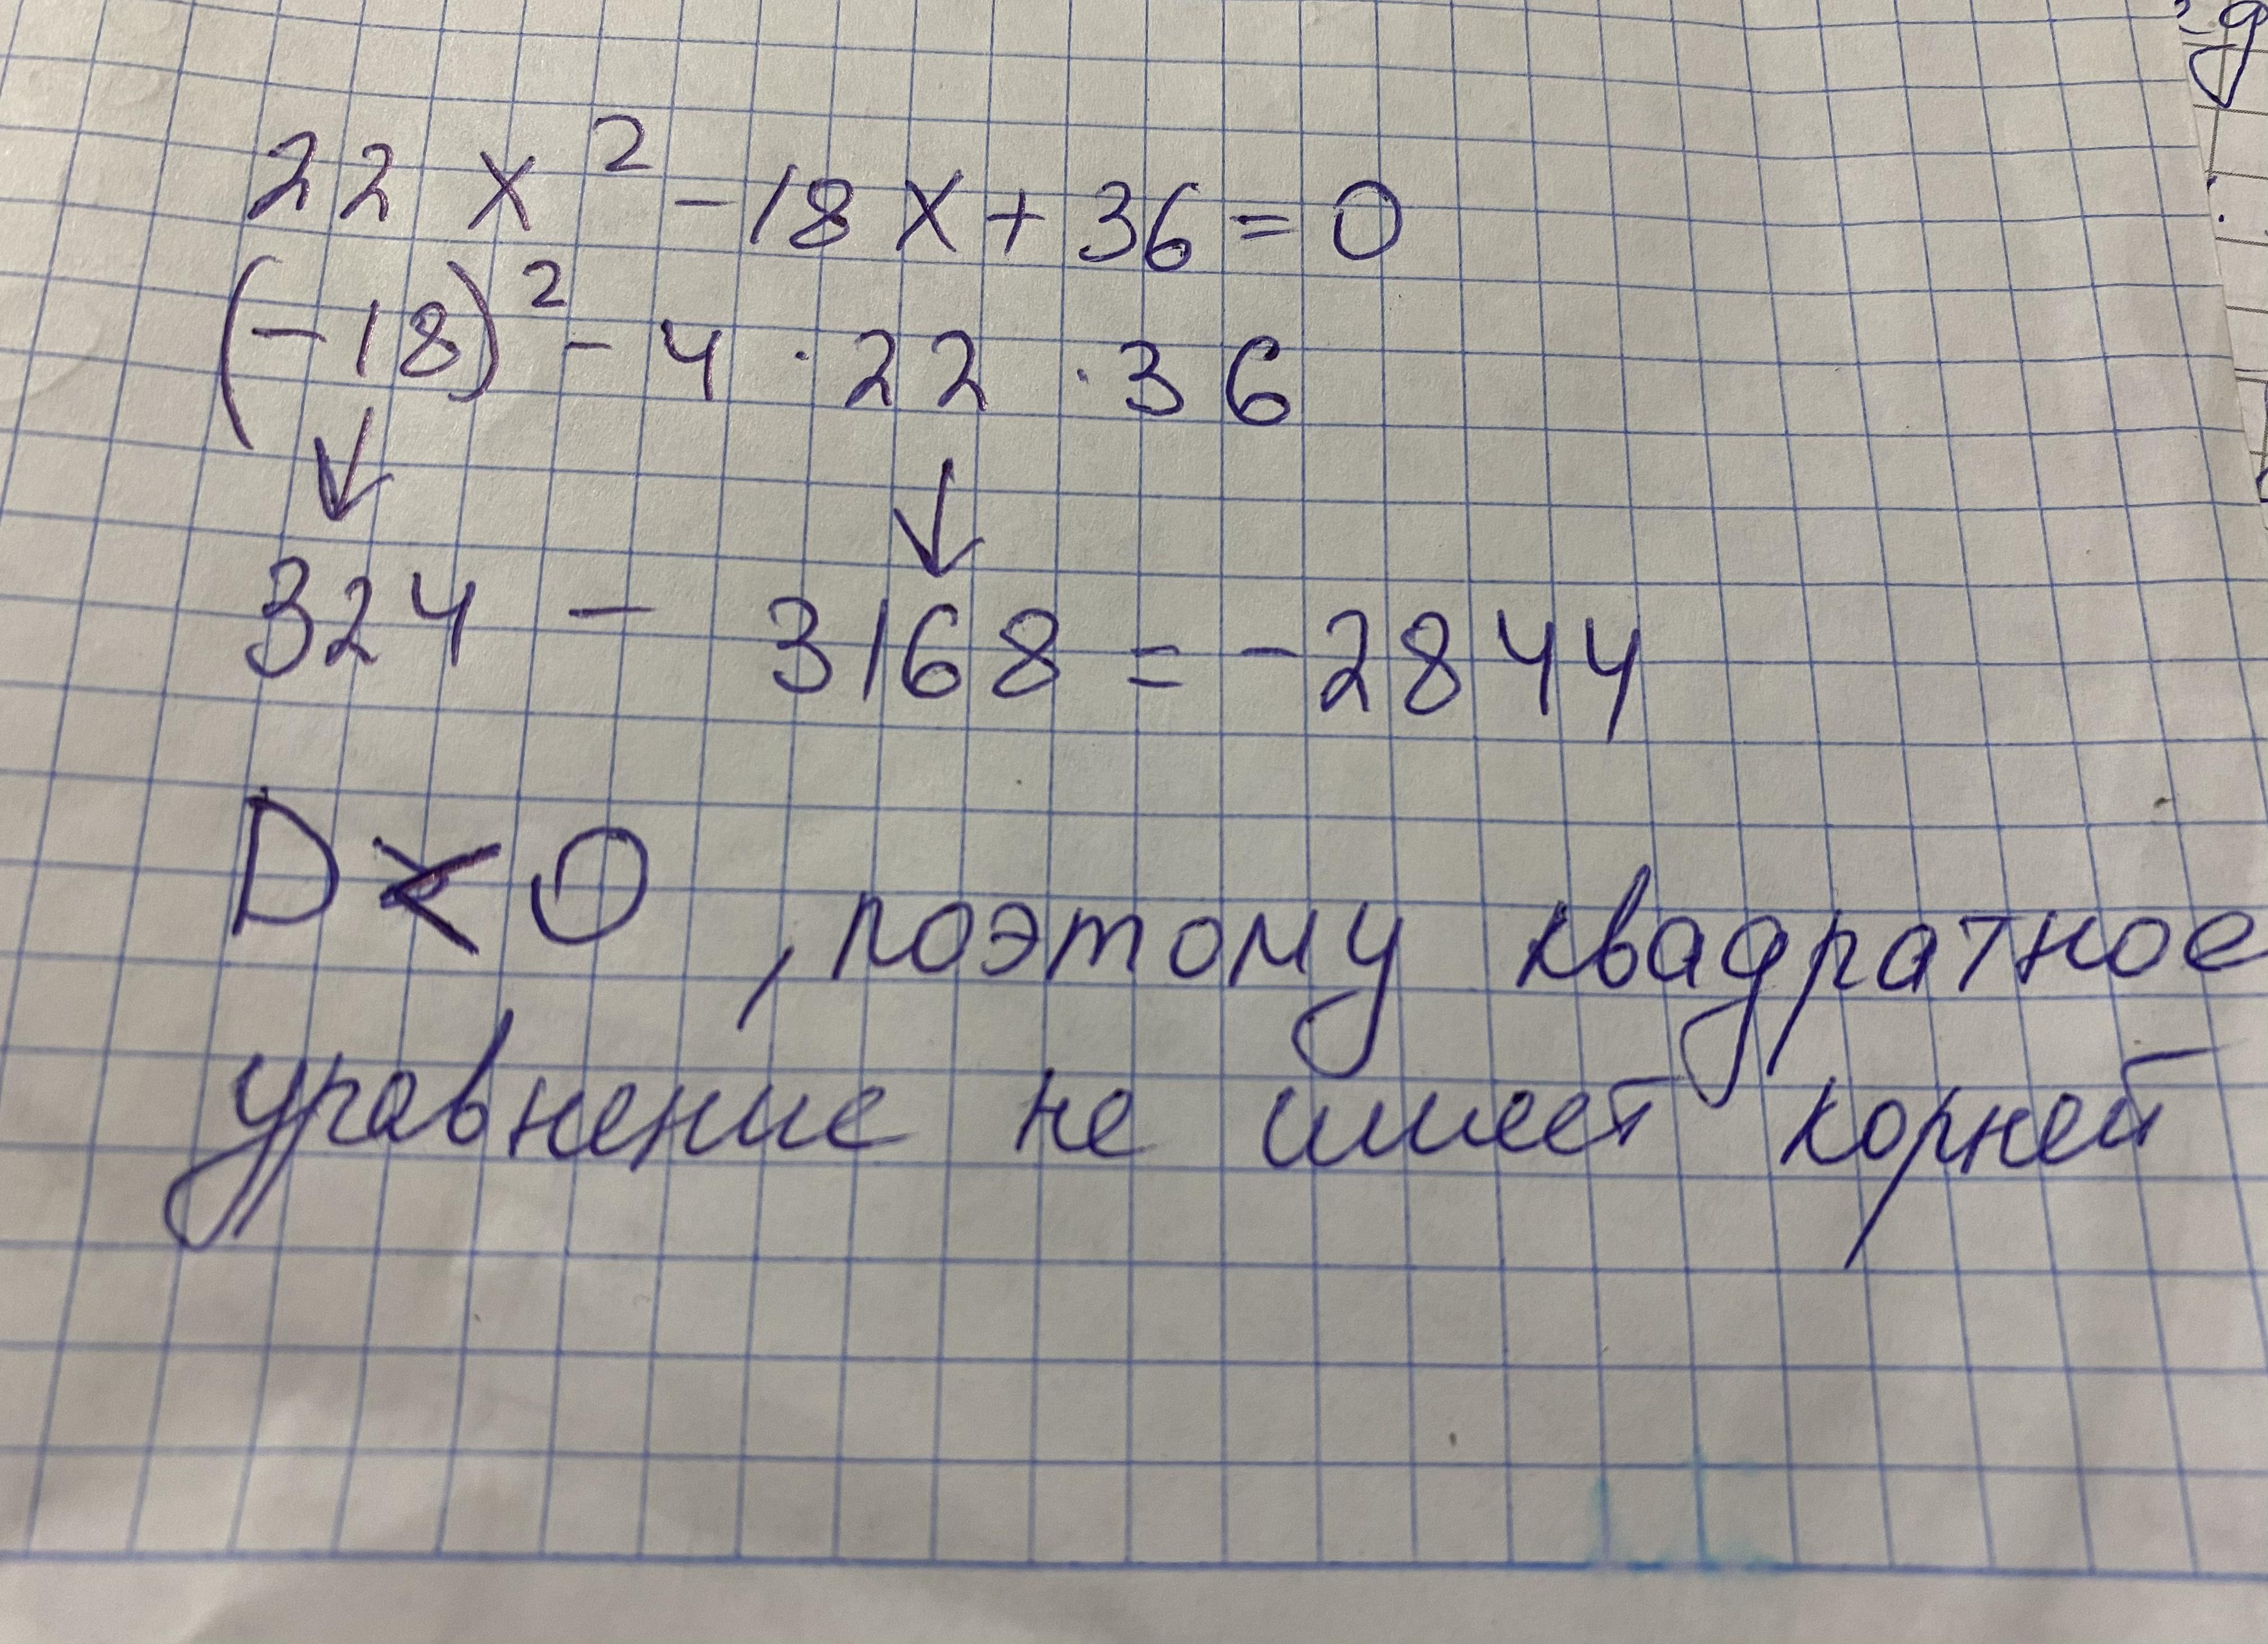 22x² - 18x + 36 = 0
(-18)² - 4 · 22 · 36
↓ ↓
324 - 3168 = -2844
D < 0, поэтому квадратное
уравнение не имеет корней